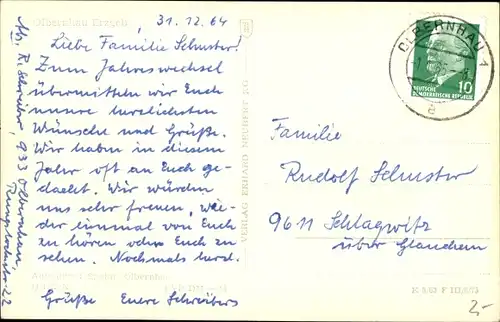 31.12.64
Liebe Familie Schuster!
Zum Jahreswechsel
übermitteln wir Euch
unsere herzlichsten
Wünsche und Grüße.
Wir haben in diesem
Jahr oft an Euch ge-
dacht. Wir würden
uns sehr freuen, wie-
der einmal von Euch
zu hören oder Euch zu
sehen. Nochmals herzl.
Grüße Eure Schreibers
Abs. R. Schreiber, 933 Olbernhau,
22
Olbernhau Erzgeb.
VERLAG ERHARD NEUBERT KG
OLBERNHAU 1
a
DEUTSCHE
DEMOKRATISCHE REPUBLIK
10
Familie
Rudolf Schuster
9611 Schlagwitz
über Glauchau
2,-